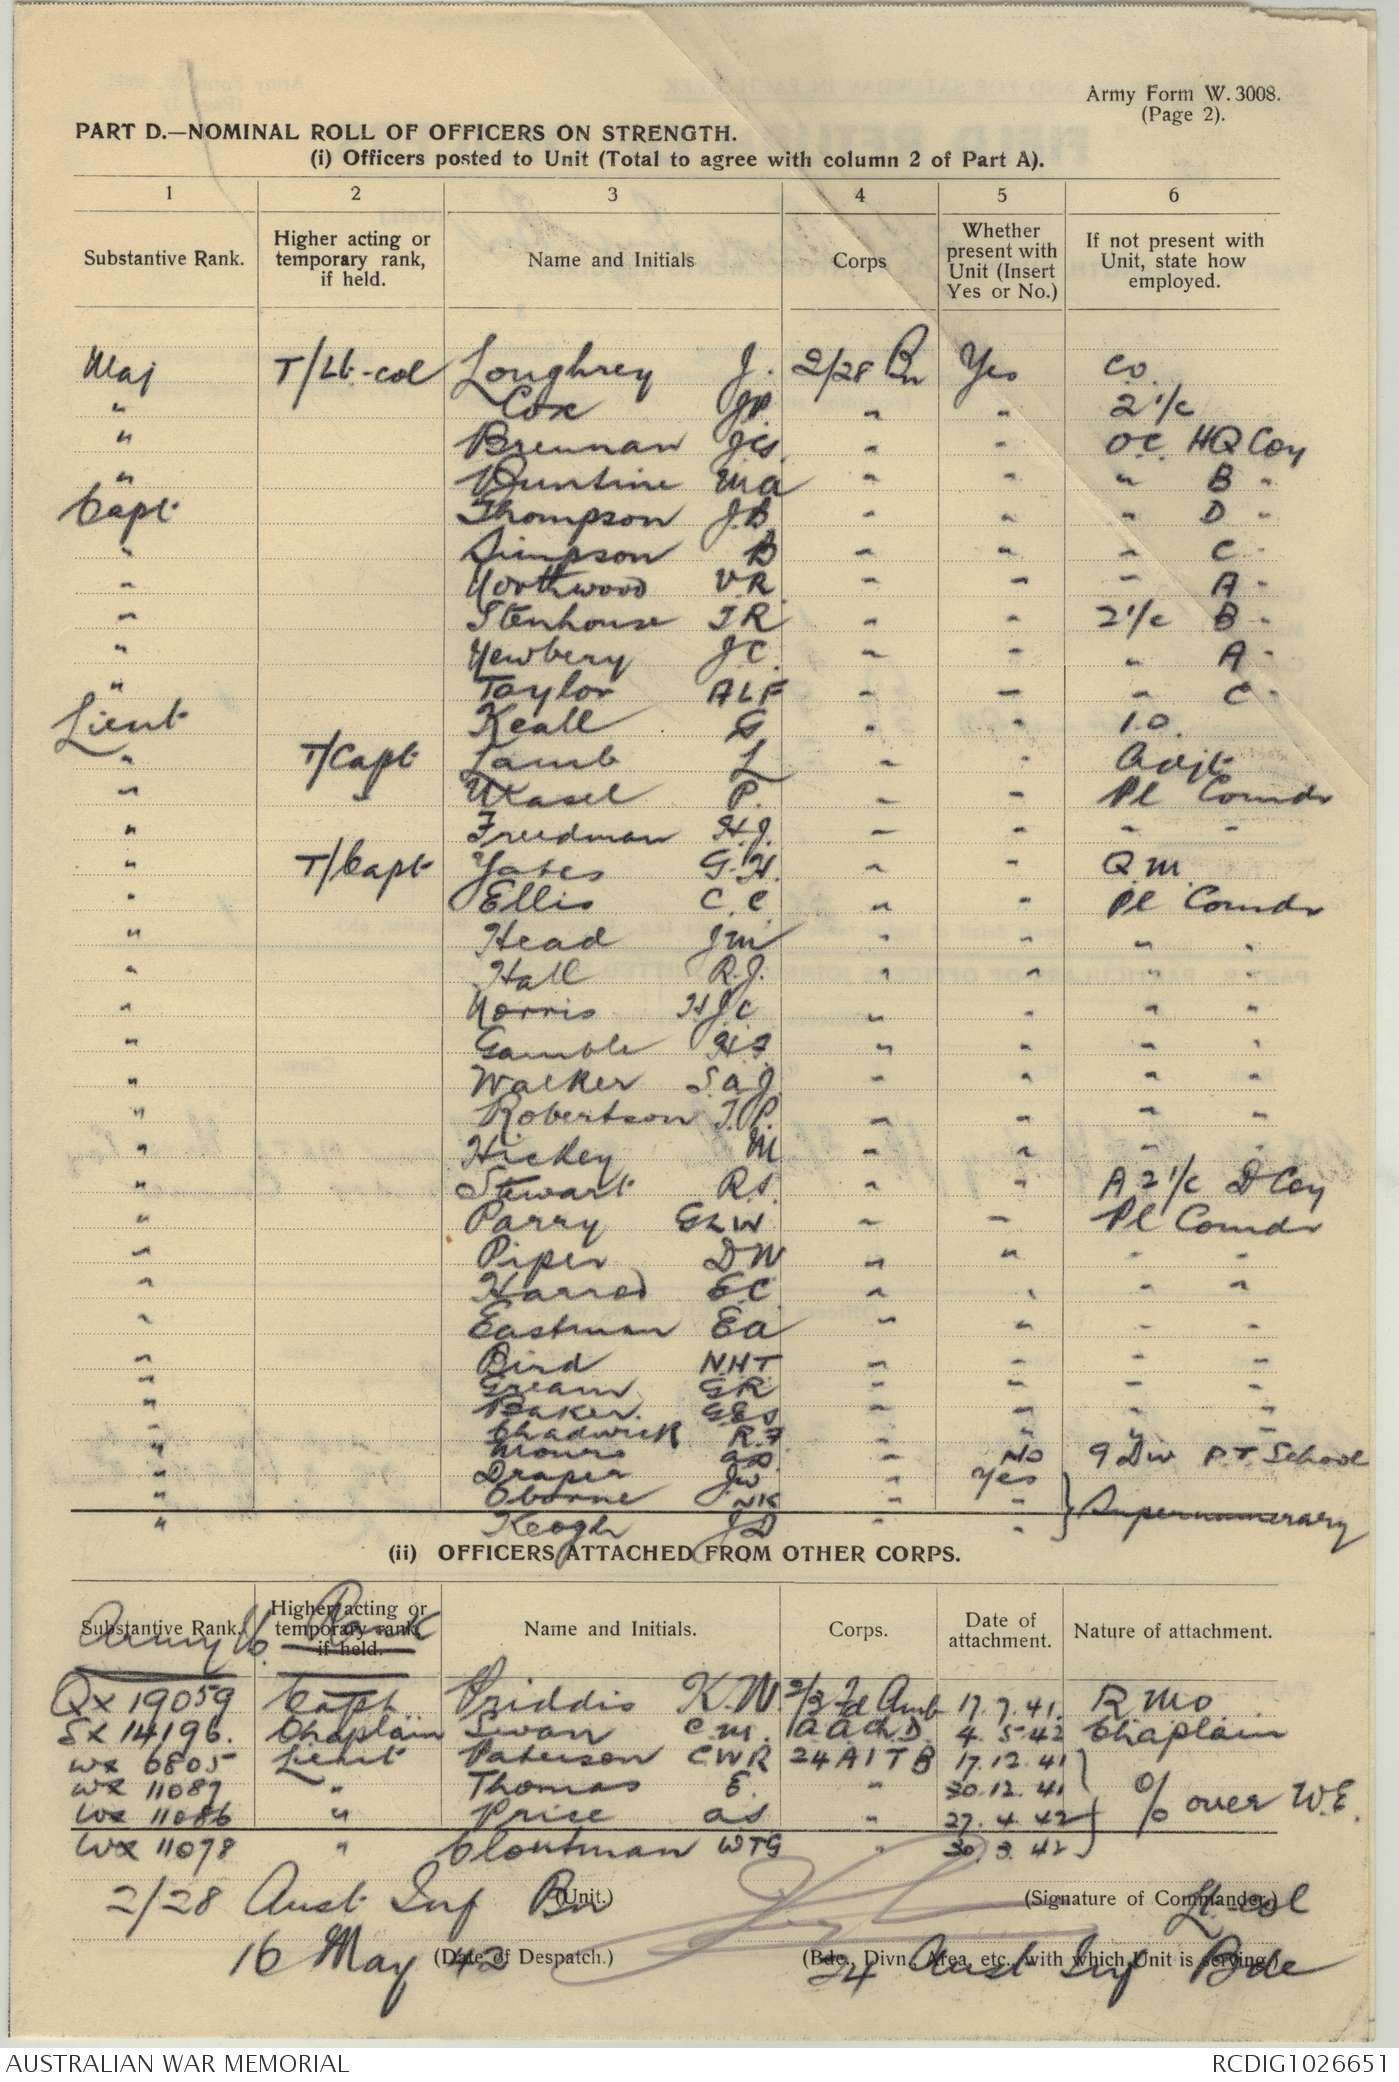 Army Form W.3008.
(Page 2).
PART D.—NOMINAL ROLL OF OFFICERS ON STRENGTH.
(i) Officers posted to Unit (Total to agree with column 2 of Part A).
1 2 3 4 5 6
Substantive Rank. Higher acting or temporary rank, if held. Name and Initials Corps Whether present with Unit (Insert Yes or No.) If not present with Unit, state how employed.
Maj T/Lt-col Loughrey J. 2/28 Bn Yes C.O.
" Cox J.P. " " 2 i/c
" Brennan J.G. " " O.C. HQ Coy
" Buntine M A " " " B "
Capt Thompson J.B. " " " D "
" Simpson B " " " C "
" Northwood V.R. " " " A "
" Stenhouse T R " " 2 i/c B "
" Newbery J.C. " " " A "
" Taylor A L F " " " C "
Lieut Keall G " " I.O.
" T/Capt Lamb L " " Adjt
" " Masel P. " " Pl Comdr
" Freedman H.J. " " " "
" T/Capt Yates G.H. " " Q.M.
" Ellis C.C. " " Pl Comdr
" Head J M " " " "
" Hall R.J. " " " "
" Norris H J C " " " "
" Gamble H.F. " " " "
" Walker S.A.J. " " " "
" Robertson T.P. " " " "
" Hickey M " " " "
" Stewart R.S. " " A 2 i/c D Coy
" Parry G L W " " Pl Comdr
" Piper D W " " " "
" Harrod E.C. " " " "
" Eastman E A " " " "
" Bird N.H.T " " " "
" Gream G R " " " "
" Baker G E S " " " "
" Chadwick R.F. " " " "
" A D " No 9 Div P.T. School
" Draper J W " Yes
" Oborne N K " " Supernumerary
" Keogh J D " "
(ii) OFFICERS ATTACHED FROM OTHER CORPS.
Substantive Rank. Higher acting or temporary rank, if held. Name and Initials. Corps. Date of attachment. Nature of attachment.
Army No. Rank
QX 19059 Capt Priddis K.W. 2/3 Fd Amb 17.7.41. R.M.O.
SX 14196. Chaplain Swan C.M. A.A.Ch.D. 4.5.42 Chaplain
WX 6805 Lieut Paterson C W R 24 A I T B 17.12.41
WX 11087 " Thomas E. " 30.12.41 o/o over W.E.
WX 11086 " Price A S " 27.4.42
WX 11078 " Cloutman W T G " 30.3.42
2/28 Aust Inf Bn (Unit.) (Signature of Commander.) Lt-col
16 May 42 (Date of Despatch.) (Bde., Divn., Area, etc., with which Unit is serving.) 24 Aust Inf Bde
AUSTRALIAN WAR MEMORIAL RCDIG1026651